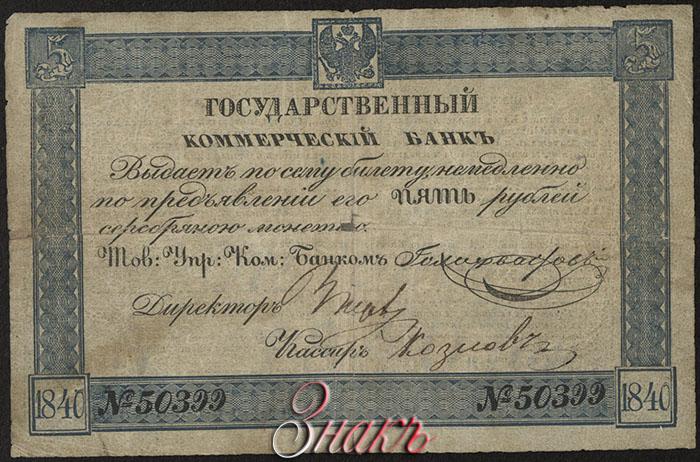 5 5
ГОСУДАРСТВЕННЫЙ
КОММЕРЧЕСКІЙ БАНКЪ
Выдаетъ по сему билету, немедленно
по предъявленіи его ПЯТЬ рублей
серебряною монетою.
Тов: Упр: Ком: Банкомъ
Директоръ
Кассиръ Козловъ
1840 №50399 №50399 1840
Знакъ